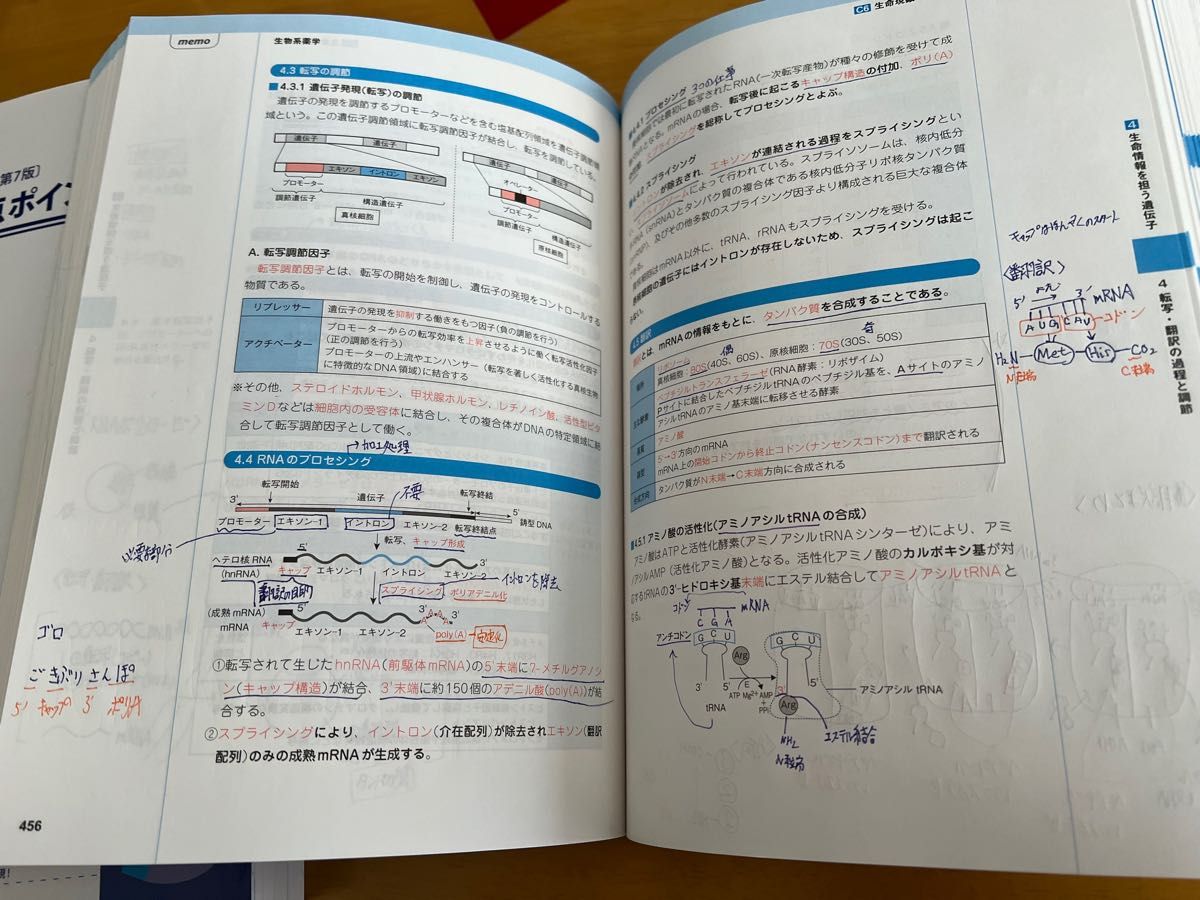 第7版]
点ポイン
memo
生物系薬学
4.3 転写の調節
4.3.1 遺伝子発現(転写)の調節
遺伝子の発現を調節するプロモーターなどを含む塩基配列領域を遺伝子調節領
域という。この遺伝子調節領域に転写調節因子が結合し、転写を調節している。
遺伝子
遺伝子
エキソン
イントロン
エキソン
プロモーター
調節遺伝子
構造遺伝子
真核細胞
遺伝子
遺伝子
オペレーター
プロモーター
調節遺伝子
構造遺伝子
原核細胞
A. 転写調節因子
転写調節因子とは、転写の開始を制御し、遺伝子の発現をコントロールする
物質である。
リプレッサー
遺伝子の発現を抑制する働きをもつ因子(負の調節を行う)
アクチベーター
プロモーターからの転写効率を上昇させるように働く転写活性化因子
(正の調節を行う)
プロモーターの上流やエンハンサー(転写を著しく活性化する真核生物
に特徴的なDNA領域)に結合する
※その他、ステロイドホルモン、甲状腺ホルモン、レチノイン酸、活性型ビタ
ミンDなどは細胞内の受容体に結合し、その複合体がDNAの特定領域に結
合して転写調節因子として働く。
→加工処理
4.4 RNAのプロセシング
転写開始
遺伝子
不要
転写終結
3'
5'
鋳型DNA
プロモーター
エキソン-1
イントロン
エキソン-2
転写終結点
必要な部分
転写、キャップ形成
ヘテロ核RNA
(hnRNA)
5'
3'
キャップ
エキソン-1
イントロン
エキソン-2
イントロンを除去
翻訳の目印
スプライシング
ポリアデニル化
(成熟mRNA)
mRNA
5'
3'
キャップ
エキソン-1
エキソン-2
poly(A)
安定化
ゴロ
ごきぶりさんぽ
5' キャップの 3' ポリA
①転写されて生じたhnRNA(前駆体mRNA)の5'末端に7-メチルグアノシ
ン(キャップ構造)が結合、3'末端に約150個のアデニル酸(poly(A))が結
合する。
②スプライシングにより、イントロン(介在配列)が除去されエキソン(翻訳
配列)のみの成熟mRNAが生成する。
456
C6 生命現象
4.4.1 プロセシング 3つの仕事
では最初に転写されたRNA(一次転写産物)が種々の修飾を受けて成
となる。mRNAの場合、転写後に起こるキャップ構造の付加、ポリ(A)
スプライシングを総称してプロセシングとよぶ。
4.4.2 スプライシング
が除去され、エキソンが連結される過程をスプライシングとい
によって行われている。スプライソソームは、核内低分
子RNA(snRNA)とタンパク質の複合体である核内低分子リボ核タンパク質
、及びその他多数のスプライシング因子より構成される巨大な複合体
である。
真核細胞はmRNA以外に、tRNA、rRNAもスプライシングを受ける。
原核細胞の遺伝子にはイントロンが存在しないため、スプライシングは起こ
らない。
4.5 翻訳
翻訳とは、mRNAの情報をもとに、タンパク質を合成することである。
リボソーム
偶
奇
真核細胞:80S(40S、60S)、原核細胞:70S(30S、50S)
ペプチジルトランスフェラーゼ(RNA酵素:リボザイム)
Pサイトに結合したペプチジルtRNAのペプチジル基を、Aサイトのアミノ
アシルtRNAのアミノ基末端に転移させる酵素
アミノ酸
5'→3'方向のmRNA
mRNA上の開始コドンから終止コドン(ナンセンスコドン)まで翻訳される
合成方向
タンパク質がN末端→C末端方向に合成される
4.5.1 アミノ酸の活性化(アミノアシルtRNAの合成)
アミノ酸はATPと活性化酵素(アミノアシルtRNAシンターゼ)により、アミ
ノアシルAMP(活性化アミノ酸)となる。活性化アミノ酸のカルボキシ基が対
応するtRNAの3'-ヒドロキシ基末端にエステル結合してアミノアシルtRNAと
なる。
コドン
mRNA
C G A
アンチコドン
G C U
G C U
Arg
3'
5'
E
ATP Mg²⁺ AMP
+
PPi
3'
tRNA
Arg
アミノアシルtRNA
NH₂
N末端
エステル結合
4
生命情報を担う遺伝子
4 転写・翻訳の過程と調節
キャップはほんやくのスタート
〈翻訳〉
5'
3'
mRNA
A U G
C A U
コドン
H₂N
Met
His
CO₂
N末端
C末端